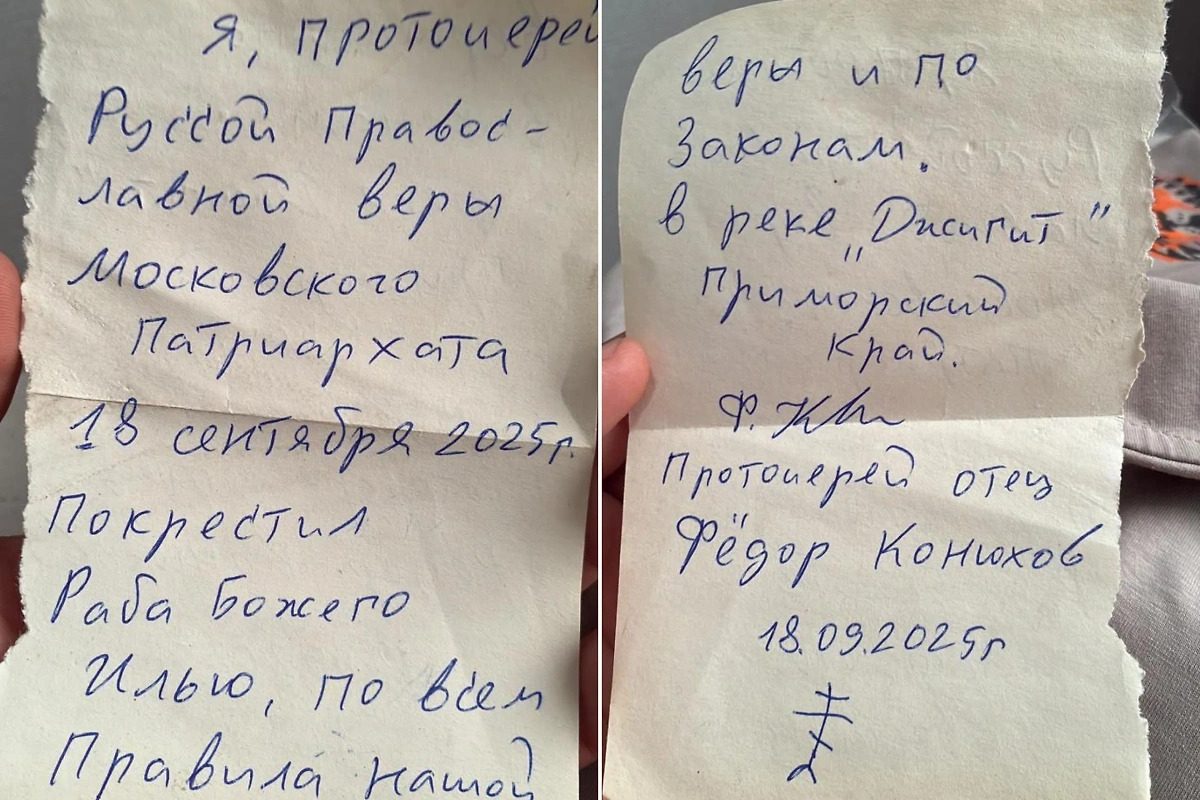 Я, протоиерей
Руссой Правос-
лавной веры
Московского
Патриархата
18 сентября 2025г.
Покрестил
Раба Божего
Илью, по всем
Правила нашой
веры и по
Законам.
в реке „Джигит"
Приморский
Край.
Протоиерей отец
Фёдор Конюхов
18.09.2025г